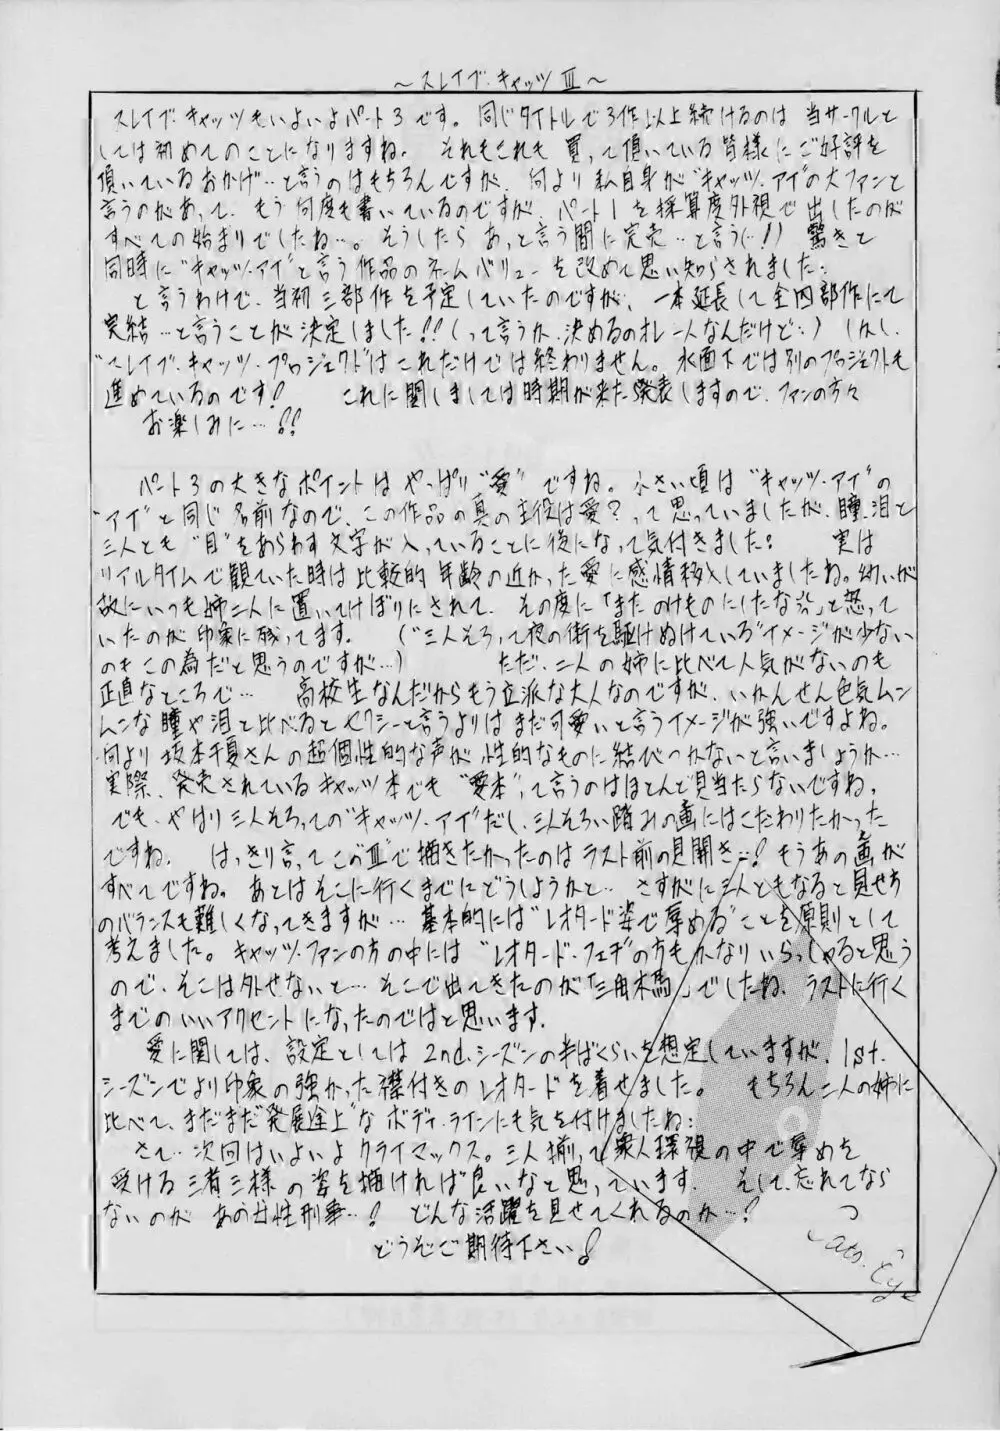 ～スレイブ・キャッツ Ⅲ～
スレイブ・キャッツもいよいよパート3です。同じタイトルで3作以上続けるのは当サークルと
しては初めてのことになりますね。それもこれも買って頂いている皆様にご好評を
頂いているおかげ…と言うのはもちろんですが、何より私自身が“キャッツ・アイ”の大ファンと
言うのがあって、もう何度も書いているのですが、パート1を採算度外視で出したのが
すべての始まりでしたね…。そうしたらあっと言う間に完売…と言う(…!!) 驚きと
同時に“キャッツ・アイ”と言う作品のネームバリューを改めて思い知らされました;
と言うわけで、当初三部作を予定していたのですが、一本延長して全四部作にて
完結…と言うことが決定しました!!(って言うか、決めるのオレ一人なんだけど…) しかし、
“スレイブ・キャッツ・プロジェクト”はこれだけでは終わりません。水面下では別のプロジェクトも
進めているのです! これに関しましては時期が来たら発表しますので、ファンの方々
お楽しみに…!!
パート3の大きなポイントはやっぱり“愛”ですね。小さい頃は“キャッツ・アイ”の
“アイ”と同じ名前なので、この作品の真の主役は愛?って思っていましたが、瞳、泪と
三人とも“目”をあらわす文字が入っていることに後になって気付きました; 実は
リアルタイムで観ていた時は比較的年齢の近かった愛に感情移入していましたね。幼いが
故にいつも姉二人に置いてけぼりにされて、その度に「またのけものにしたな」と怒って
いたのが印象に残ってます。(“三人そろって夜の街を駆けぬけている”イメージが少ない
のもこの為だと思うのですが…) ただ、二人の姉に比べて人気がないのも
正直なところで… 高校生なんだからもう立派な大人なのですが、いかんせん色気ムン
ムンな瞳や泪と比べるとセクシーと言うよりはまだ可愛いと言うイメージが強いですよね。
何より坂本千夏さんの超個性的な声が性的なものに結びつかないと言いましょうか…
実際、発売されているキャッツ本でも“愛本”って言うのはほとんど見当たらないですね。
でも、やはり三人そろっての“キャッツ・アイ”だし、三人そろい踏みの画にはこだわりたかった
ですね。はっきり言ってこの“Ⅲ”で描きたかったのはラスト前の見開き…!もうあの画が
すべてですね。あとはそこに行くまでにどうしようかと… さすがに三人ともなると見せ方
のバランスも難しくなってきますが… 基本的には“レオタード姿で辱める”ことを原則として
考えました。キャッツ・ファンの方の中には“レオタード・フェチ”の方もかなりいらっしゃると思う
ので、そこは外せないと… そこで出てきたのが「三角木馬」でしたね、ラストに行く
までのいいアクセントになったのではと思います。
愛に関しては、設定としては2nd.シーズンの半ばくらいを想定していますが、1st.
シーズンでより印象の強かった襟付きのレオタードを着せました。もちろん二人の姉に
比べて、まだまだ“発展途上”なボディ・ラインにも気を付けましたね;
さて…次回はいよいよクライマックス。三人揃って衆人環視の中で辱めを
受ける三者三様の姿を描ければ良いなと思っています。そして、忘れてなら
ないのがあの女性刑事…! どんな活躍を見せてくれるのか…?
どうぞご期待下さい!
Cats.Eye